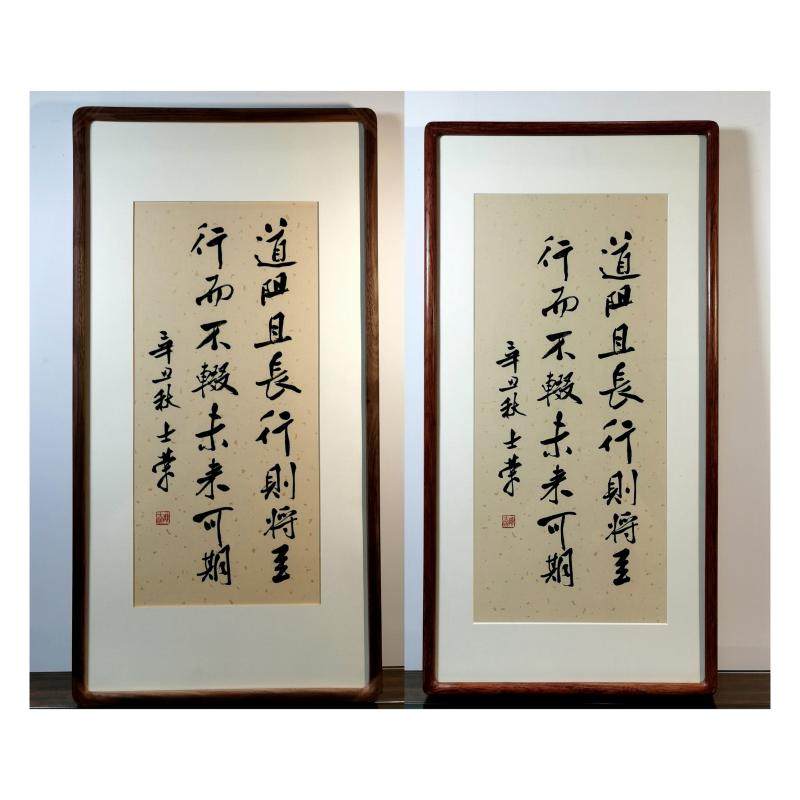 道阻且長行則將至
行而不輟未来可期
辛丑秋士榮
道阻且長行則將至
行而不輟未来可期
辛丑秋士榮